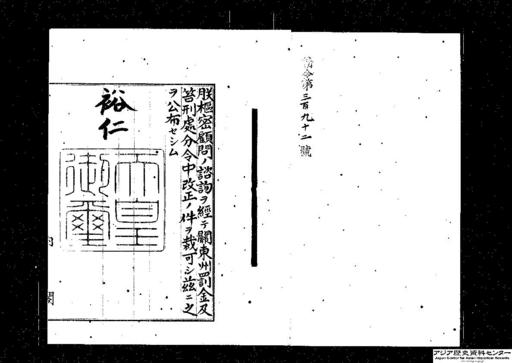 勅令第三百九十二號
朕樞密顧問ノ諮詢ヲ經テ關東州罰金及
笞刑處分令中改正ノ件ヲ裁可シ茲ニ之
ヲ公布セシム
裕仁
天皇
御璽
内閣
アジア歴史資料センター
Japan Center for Asian Historical Records